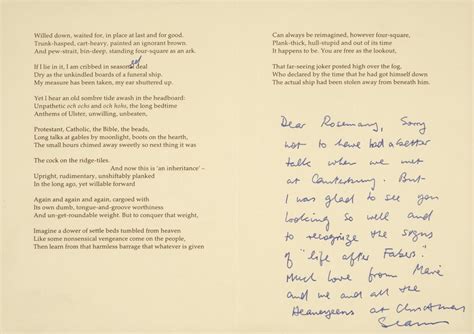 Willed down, waited for, in place at last and for good.
Trunk-hasped, cart-heavy, painted an ignorant brown.
And pew-strait, bin-deep, standing four-square as an ark.
If I lie in it, I am cribbed in seasoned deal
Dry as the unkindled boards of a funeral ship.
My measure has been taken, my ear shuttered up.
Yet I hear an old sombre tide awash in the headboard:
Unpathetic och ochs and och hohs, the long bedtime
Anthems of Ulster, unwilling, unbeaten,
Protestant, Catholic, the Bible, the beads,
Long talks at gables by moonlight, boots on the hearth,
The small hours chimed sweetly away so next thing it was
The cock on the ridge-tiles.
And now this is 'an inheritance' –
Upright, rudimentary, unshiftably planked
In the long ago, yet willable forward
Again and again and again, cargoed with
Its own dumb, tongue-and-groove worthiness
And un-get-roundable weight. But to conquer that weight,
Imagine a dower of settle beds tumbled from heaven
Like some nonsensical vengeance come on the people,
Then learn from that harmless barrage that whatever is given
Can always be reimagined, however four-square,
Plank-thick, hull-stupid and out of its time
It happens to be. You are free as the lookout,
That far-seeing joker posted high over the fog,
Who declared by the time that he had got himself down
The actual ship had been stolen away from beneath him.
Dear Rosemary, Sorry
not to have had a better
talk when we met
at Canterbury. But
I was glad to see you
looking so well and
to recognize the signs
of "life after Faber".
Much love from Marie
and me and all the
at Christmas
Seamus